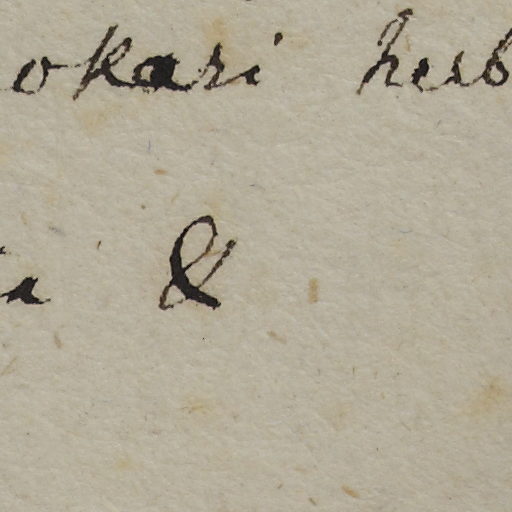 okari herb
a &